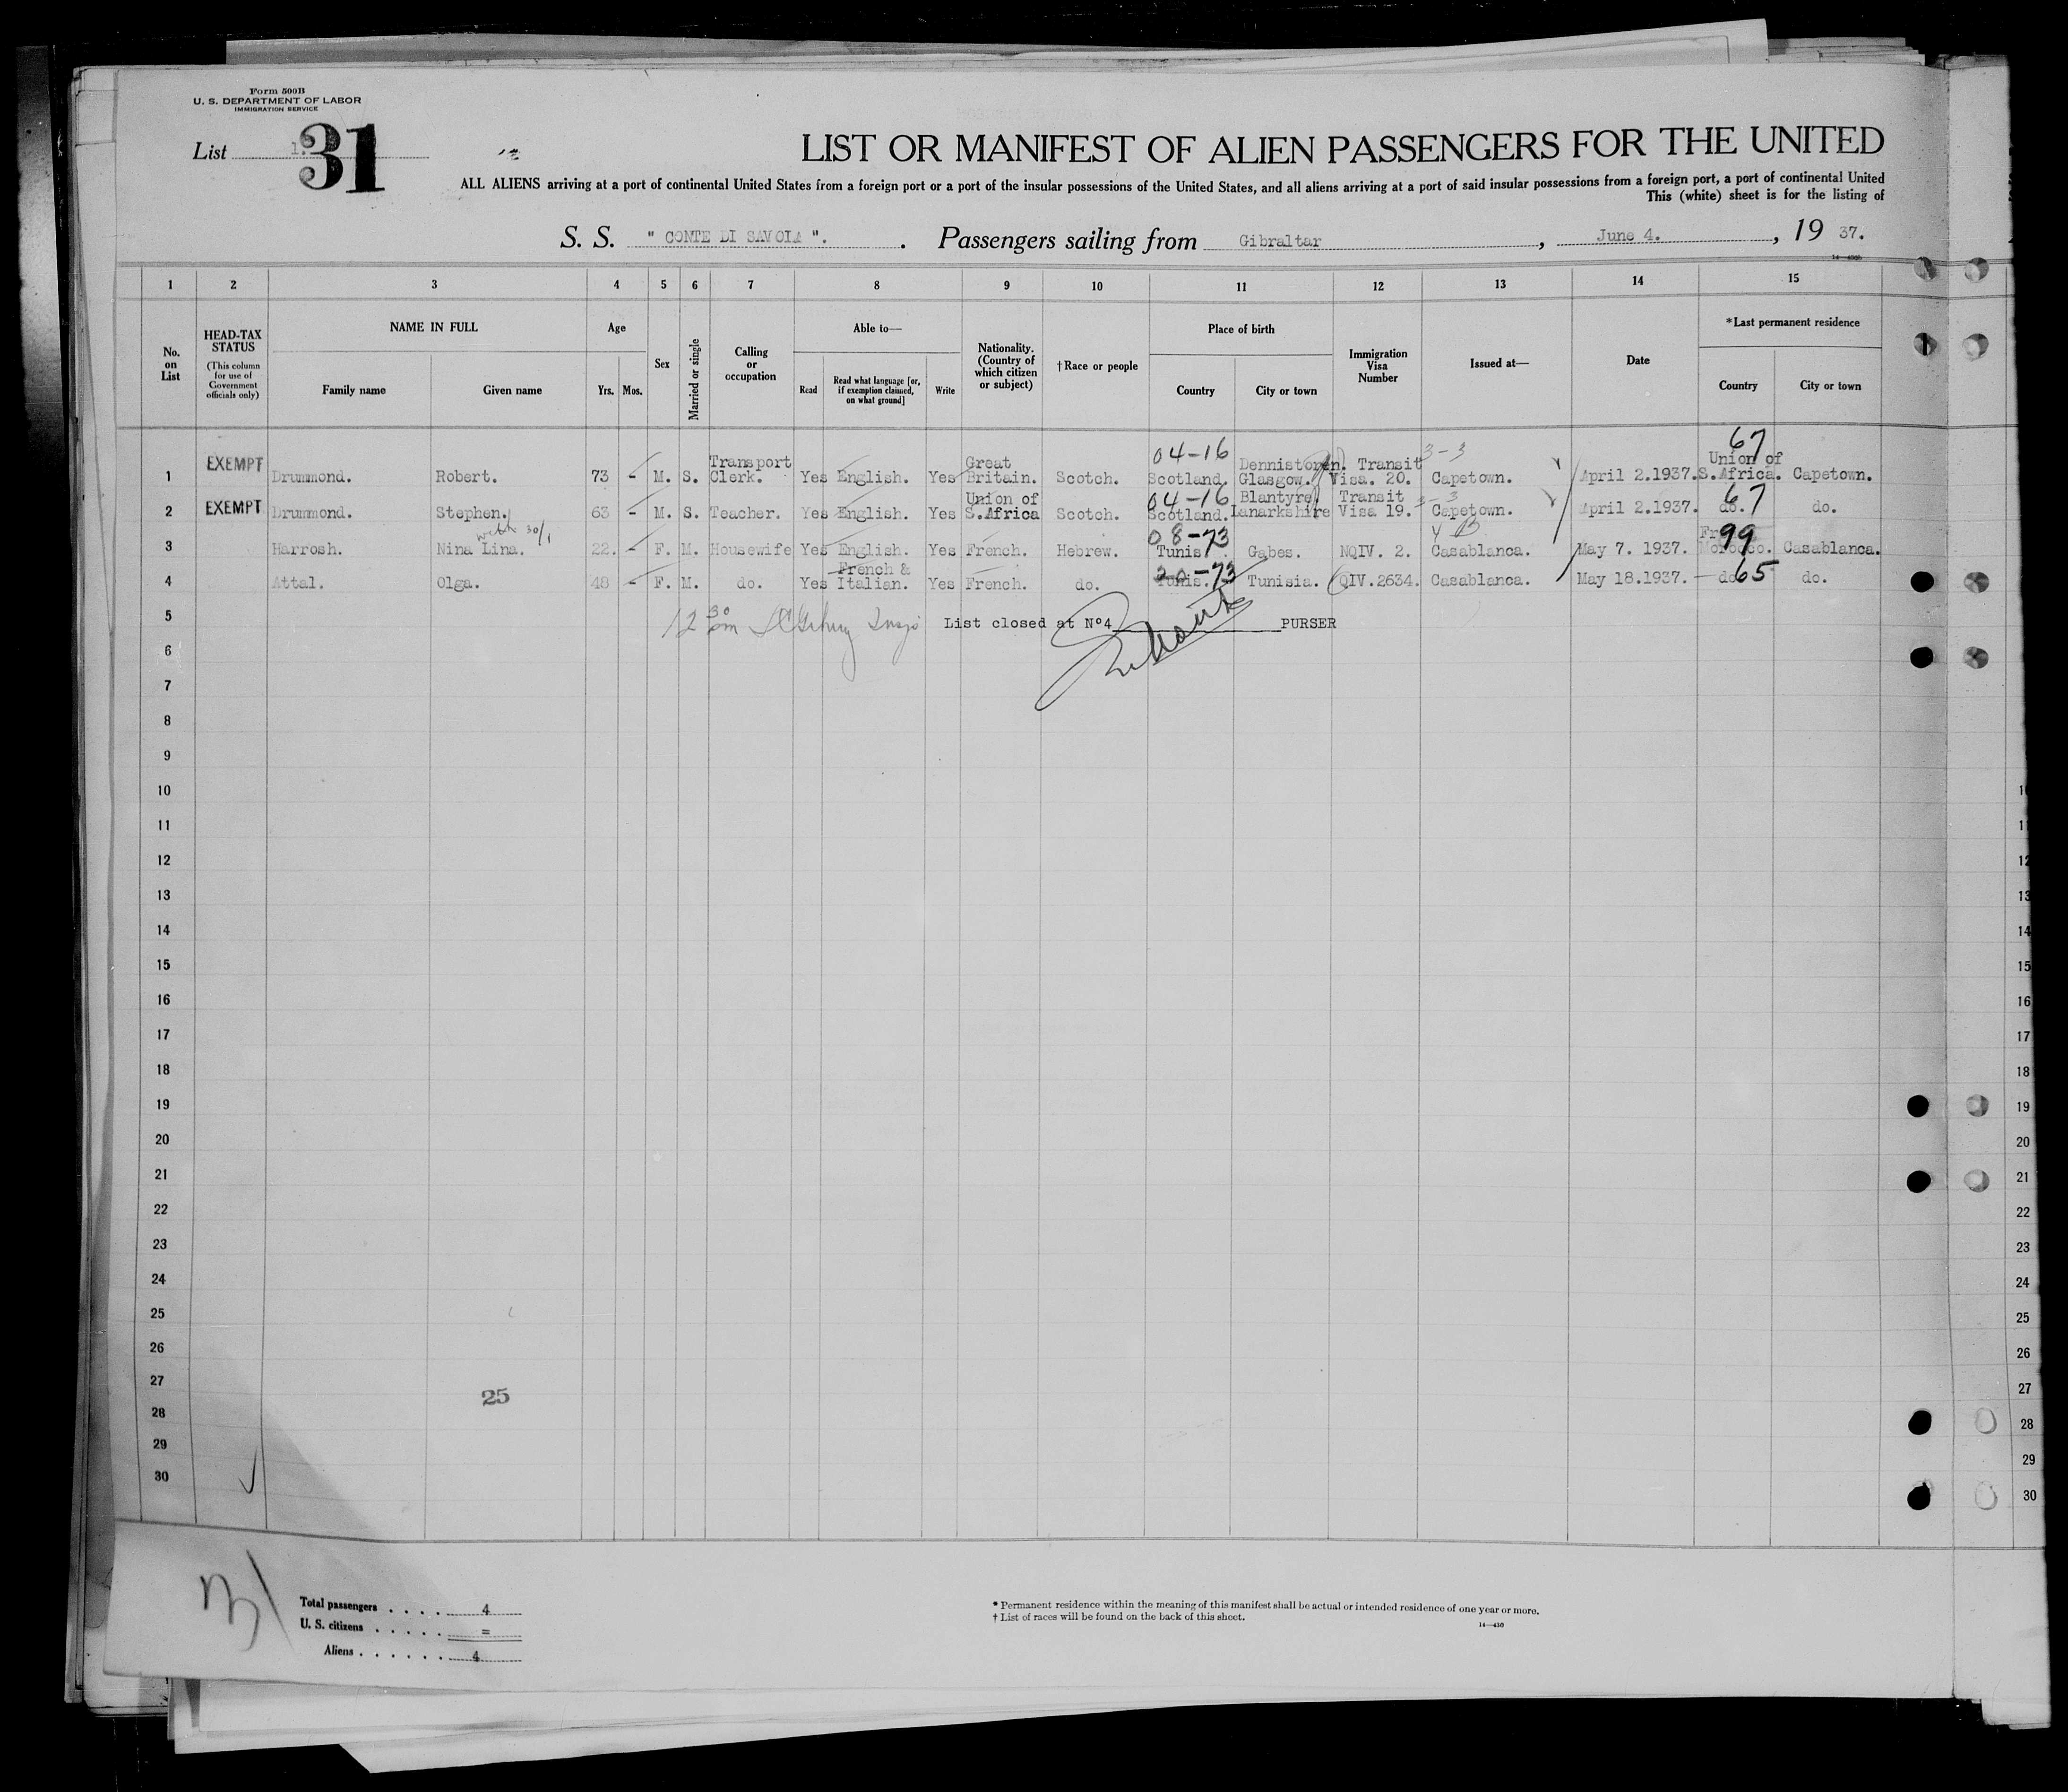 Form 500B
U. S. DEPARTMENT OF LABOR
IMMIGRATION SERVICE
List 31
LIST OR MANIFEST OF ALIEN PASSENGERS FOR THE UNITED
ALL ALIENS arriving at a port of continental United States from a foreign port or a port of the insular possessions of the United States, and all aliens arriving at a port of said insular possessions from a foreign port, a port of continental United
This (white) sheet is for the listing of
S. S. " CONTE DI SAVOIA ". Passengers sailing from Gibraltar, June 4., 19 37.
1 2 3 4 5 6 7 8 9 10 11 12 13 14 15
No. on List
HEAD-TAX STATUS (This column for use of Government officials only)
NAME IN FULL Family name Given name
Age Yrs. Mos.
Sex
Married or single
Calling or occupation
Able to— Read Read what language [or, if exemption claimed, on what ground] Write
Nationality. (Country of which citizen or subject)
†Race or people
Place of birth Country City or town
Immigration Visa Number
Issued at—
Date
*Last permanent residence Country City or town
04-16 3-3 67
1 EXEMPT Drummond. Robert. 73 - M. S. Transport Clerk. Yes English. Yes Great Britain. Scotch. Scotland. Glasgow. Transit Visa. 20. Capetown. April 2.1937. Union of S. Africa. Capetown.
04-16 3-3 67
2 EXEMPT Drummond. Stephen. 63 - M. S. Teacher. Yes English. Yes Union of S.Africa Scotch. Scotland. Blantyre, Lanarkshire Transit Visa 19. Capetown. April 2.1937. do. do.
with 30/1 08-73 99
3 Harrosh. Nina Lina. 22. - F. M. Housewife Yes English. Yes French. Hebrew. Tunis. Gabes. NQIV. 2. Casablanca. May 7. 1937. Morocco. Casablanca.
20-73 65
4 Attal. Olga. 48 - F. M. do. Yes French & Italian. Yes French. do. Tunis. Tunisia. QIV.2634. Casablanca. May 18.1937. do. do.
5 12 30 pm List closed at Nº4 PURSER
6
7
8
9
10 10
11 11
12 12
13 13
14 14
15 15
16 16
17 17
18 18
19 19
20 20
21 21
22 22
23 23
24 24
25 25
26 26
27 27
25
28 28
29 29
30 30
Total passengers . . . . 4
U. S. citizens . . . . . =
Aliens . . . . . . 4
* Permanent residence within the meaning of this manifest shall be actual or intended residence of one year or more.
† List of races will be found on the back of this sheet.
14—430